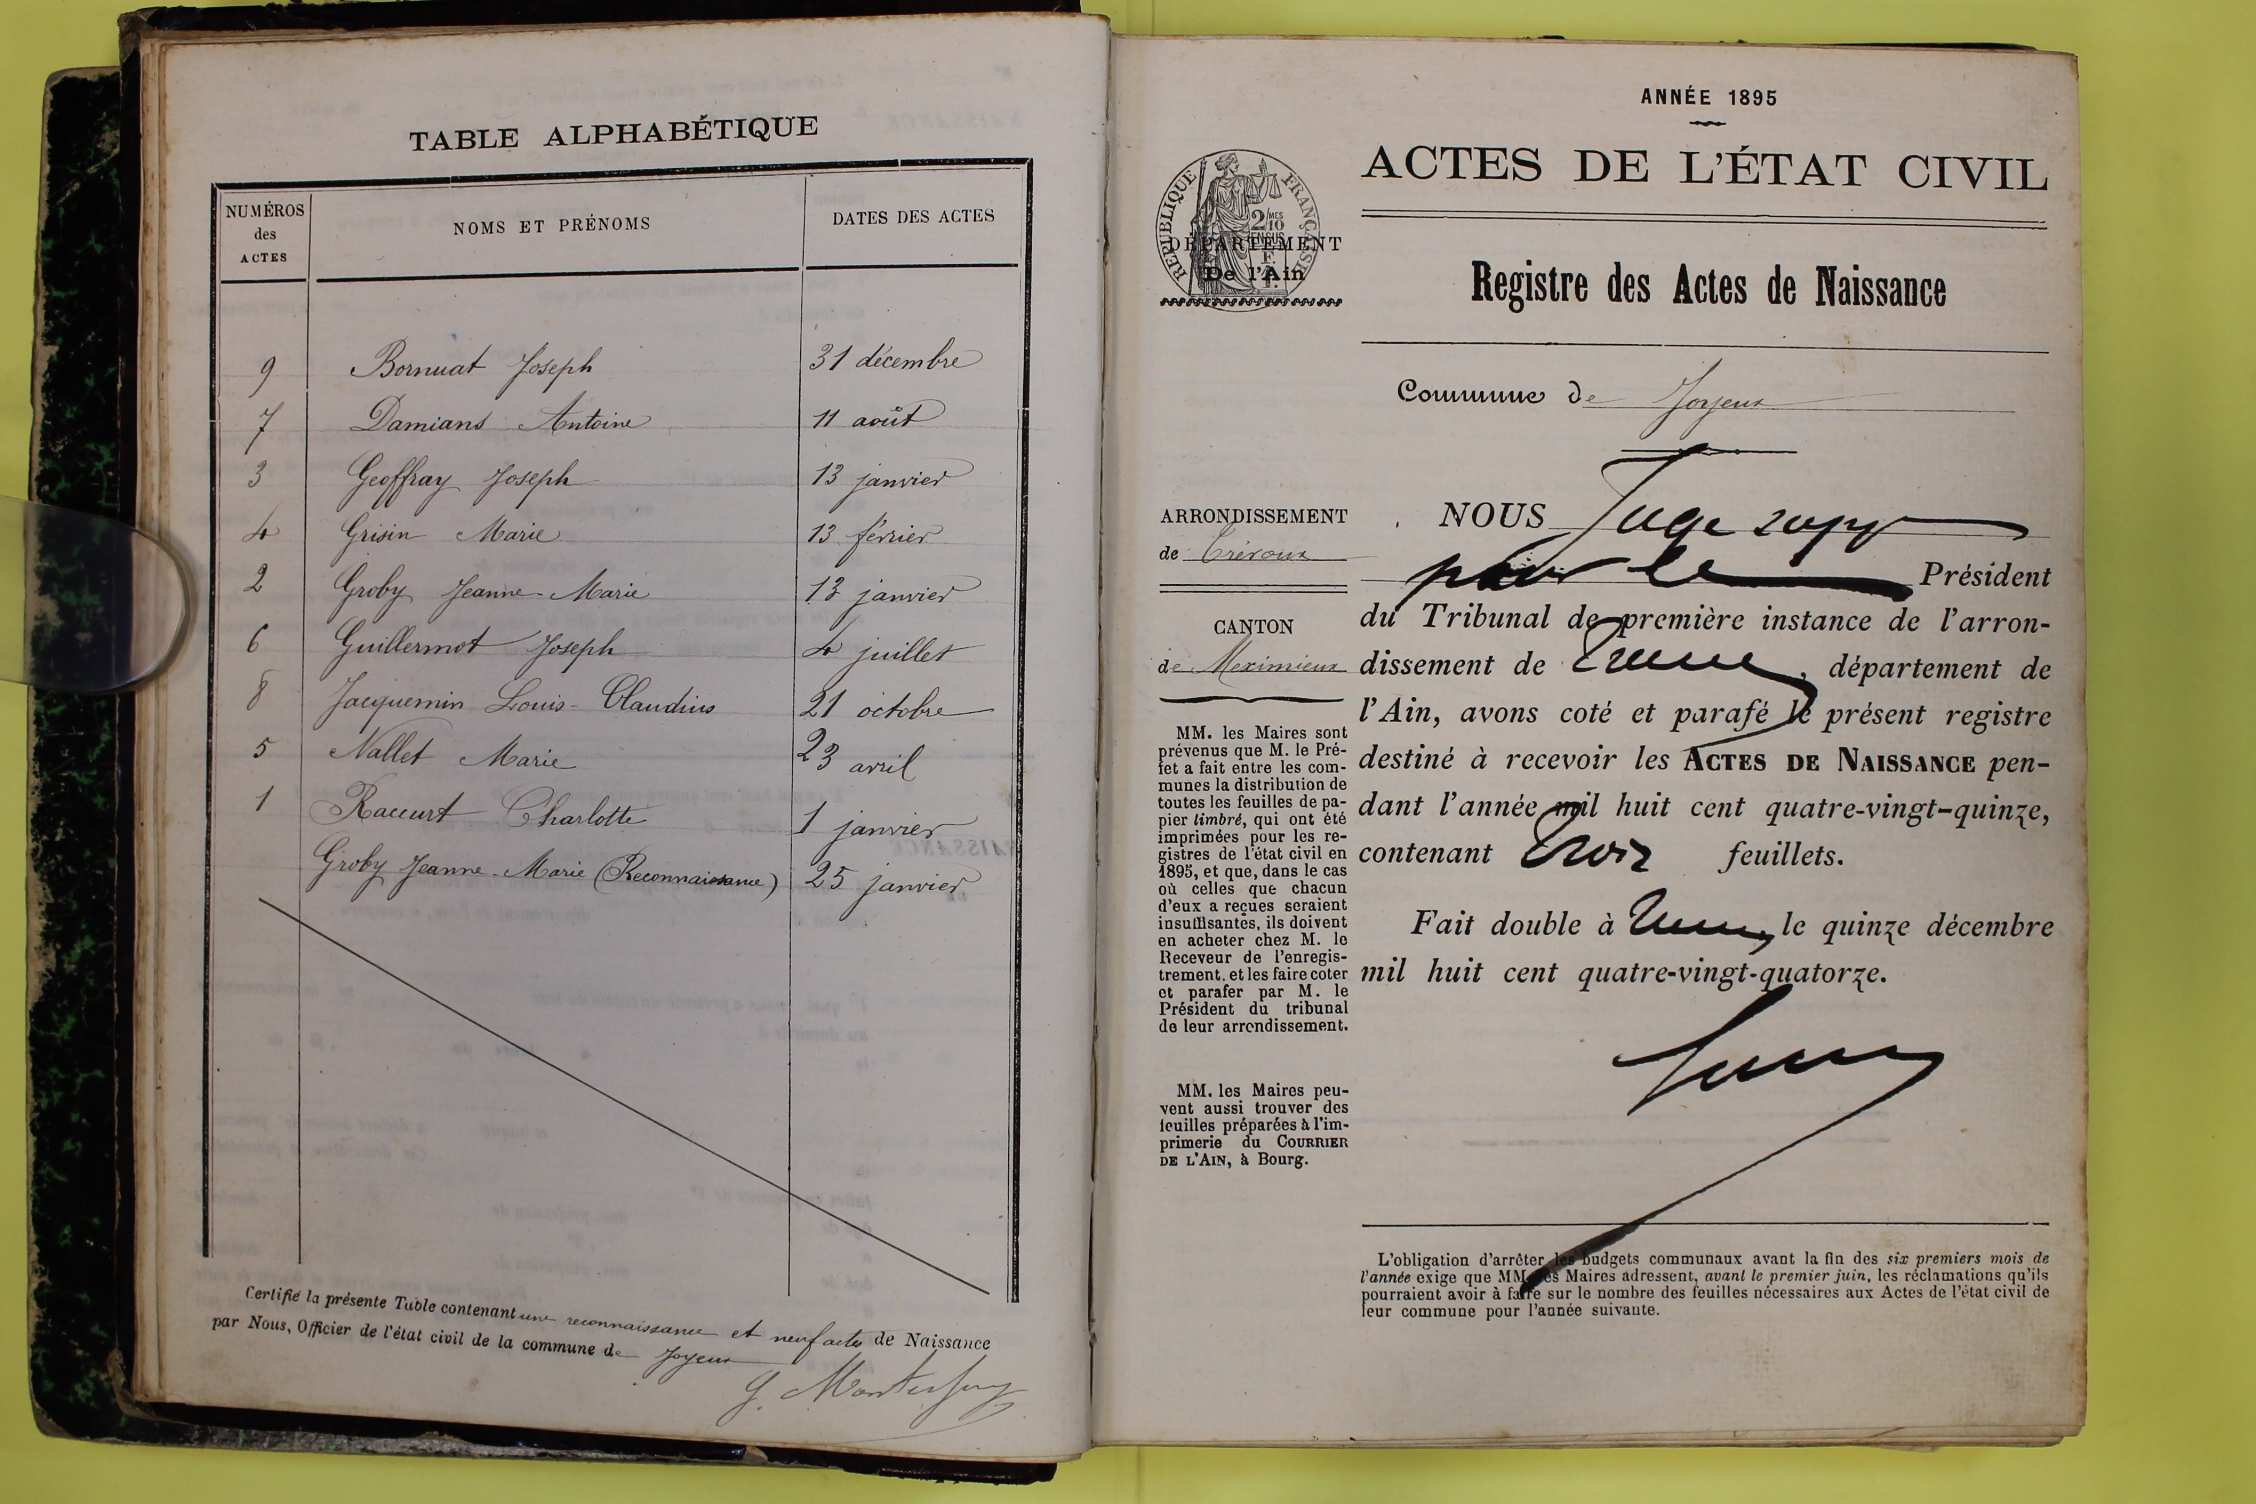 TABLE ALPHABÉTIQUE
NUMÉROS des ACTES NOMS ET PRÉNOMS DATES DES ACTES
9 Bornuat Joseph 31 décembre
7 Damians Antoine 11 août
3 Geoffray Joseph 13 janvier
4 Grisin Marie 13 février
2 Groby Jeanne-Marie 13 janvier
6 Guillermot Joseph 4 juillet
8 Jacquemin Louis-Claudius 21 octobre
5 Nallet Marie 23 avril
1 Raccurt Charlotte 1 janvier
Groby Jeanne-Marie (Reconnaissance) 25 janvier
Certifié la présente Table contenant une reconnaissance et neuf actes de Naissance
par Nous, Officier de l'état civil de la commune de Joyeux
ANNÉE 1895
ACTES DE L'ÉTAT CIVIL
RÉPUBLIQUE FRANÇAISE
2/10
DÉPARTEMENT
De l'Ain
Registre des Actes de Naissance
Commune de Joyeux
ARRONDISSEMENT
de Trévoux
CANTON
de Meximieux
MM. les Maires sont
prévenus que M. le Pré-
fet a fait entre les com-
munes la distribution de
toutes les feuilles de pa-
pier timbré, qui ont été
imprimées pour les re-
gistres de l'état civil en
1895, et que, dans le cas
où celles que chacun
d'eux a reçues seraient
insuffisantes, ils doivent
en acheter chez M. le
Receveur de l'enregis-
trement, et les faire coter
et parafer par M. le
Président du tribunal
de leur arrondissement.
MM. les Maires peu-
vent aussi trouver des
feuilles préparées à l'im-
primerie du COURRIER
DE L'AIN, à Bourg.
NOUS Juge supp
pour le Président
du Tribunal de première instance de l'arron-
dissement de Trévoux, département de
l'Ain, avons coté et parafé le présent registre
destiné à recevoir les ACTES DE NAISSANCE pen-
dant l'année mil huit cent quatre-vingt-quinze,
contenant trois feuillets.
Fait double à Trévoux, le quinze décembre
mil huit cent quatre-vingt-quatorze.
L'obligation d'arrêter les budgets communaux avant la fin des six premiers mois de
l'année exige que MM. les Maires adressent, avant le premier juin, les réclamations qu'ils
pourraient avoir à faire sur le nombre des feuilles nécessaires aux Actes de l'état civil de
leur commune pour l'année suivante.